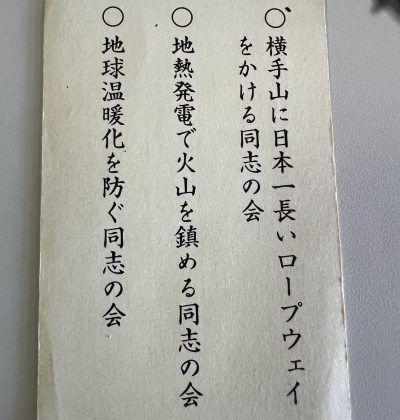 ○横手山に日本一長いロープウェイ
をかける同志の会
○地熱発電で火山を鎮める同志の会
○地球温暖化を防ぐ同志の会